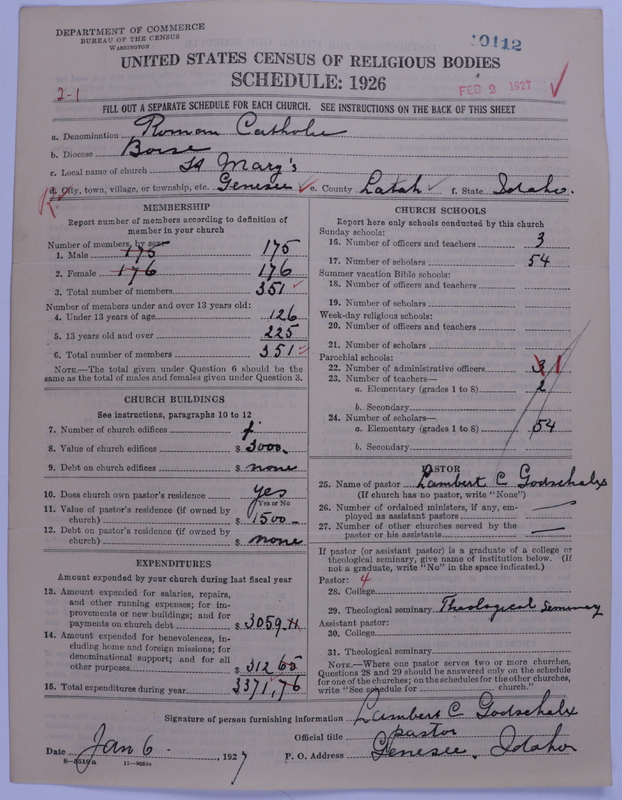 DEPARTMENT OF COMMERCE
BUREAU OF THE CENSUS
WASHINGTON
0112
UNITED STATES CENSUS OF RELIGIOUS BODIES
SCHEDULE: 1926
2-1
FEB 2 1927
FILL OUT A SEPARATE SCHEDULE FOR EACH CHURCH. SEE INSTRUCTIONS ON THE BACK OF THIS SHEET
a. Denomination Roman Catholic
b. Diocese Boise
c. Local name of church St Mary's
d. City, town, village, or township, etc. Genesee e. County Latah f. State Idaho.
MEMBERSHIP
Report number of members according to definition of member in your church
Number of members, by sex:
1. Male 175 175
2. Female 176 176
3. Total number of members 351
Number of members under and over 13 years old:
4. Under 13 years of age 126
5. 13 years old and over 225
6. Total number of members 351
NOTE.—The total given under Question 6 should be
same as the total of males and females given under Question 3.
CHURCH BUILDINGS
See instructions, paragraphs 10 to 12
7. Number of church edifices
8. Value of church edifices $ 3000.
9. Debt on church edifices $ none
10. Does church own pastor's residence yes
Yes or No
11. Value of pastor's residence (if owned by
church) $ 1500
12. Debt on pastor's residence (if owned by
church) $ none
EXPENDITURES
Amount expended by your church during last fiscal year
13. Amount expended for salaries, repairs,
and other running expenses; for im-
provements or new buildings; and for
payments on church debt $ 3059.11
14. Amount expended for benevolences, in-
cluding home and foreign missions; for
denominational support; and for all
other purposes $ 312 65
15. Total expenditures during year 3371,76
CHURCH SCHOOLS
Report here only schools conducted by this church
Sunday schools:
16. Number of officers and teachers 3
17. Number of scholars 54
Summer vacation Bible schools:
18. Number of officers and teachers
19. Number of scholars
Week-day religious schools:
20. Number of officers and teachers
21. Number of scholars
Parochial schools:
22. Number of administrative officers 3 1
23. Number of teachers—
a. Elementary (grades 1 to 8) 2
b. Secondary
24. Number of scholars—
a. Elementary (grades 1 to 8) 54
b. Secondary
PASTOR
25. Name of pastor Lambert C Godschalx
(If church has no pastor, write "None")
26. Number of ordained ministers, if any, em-
ployed as assistant pastors —
27. Number of other churches served by the
pastor or his assistants —
If pastor (or assistant pastor) is a graduate of a college or
theological seminary, give name of institution below. (If
not a graduate, write "No" in the space indicated.)
Pastor: 4
28. College
29. Theological seminary Theological Seminary
Assistant pastor:
30. College
31. Theological seminary
NOTE.—Where one pastor serves two or more churches,
Questions 28 and 29 should be answered only on the schedule
for one of the churches; on the schedules for the other churches,
write "See schedule for church."
Signature of person furnishing information Lambert C Godschalx
Official title pastor
Date Jan 6. , 1927 P. O. Address Genesee, Idaho
8-5518a 11-9084a